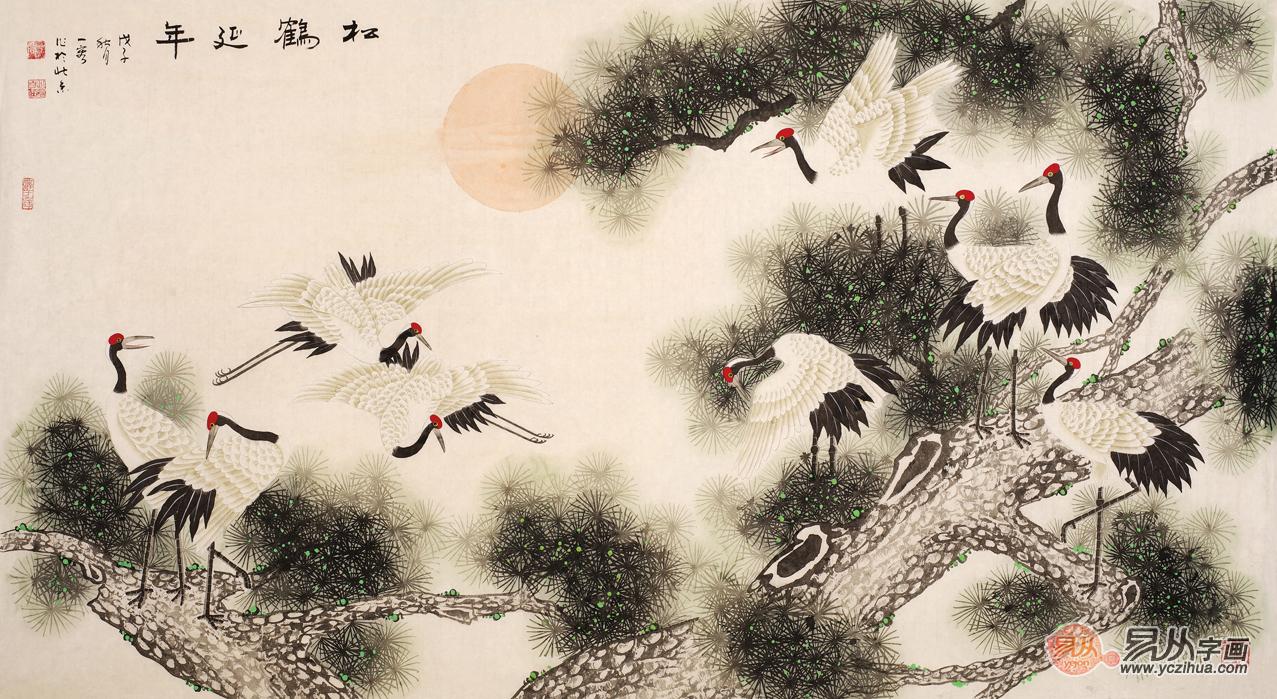 松鹤延年
戊子
秋月
一鹤
作於北京
易从
易从字画
www.yczihua.com